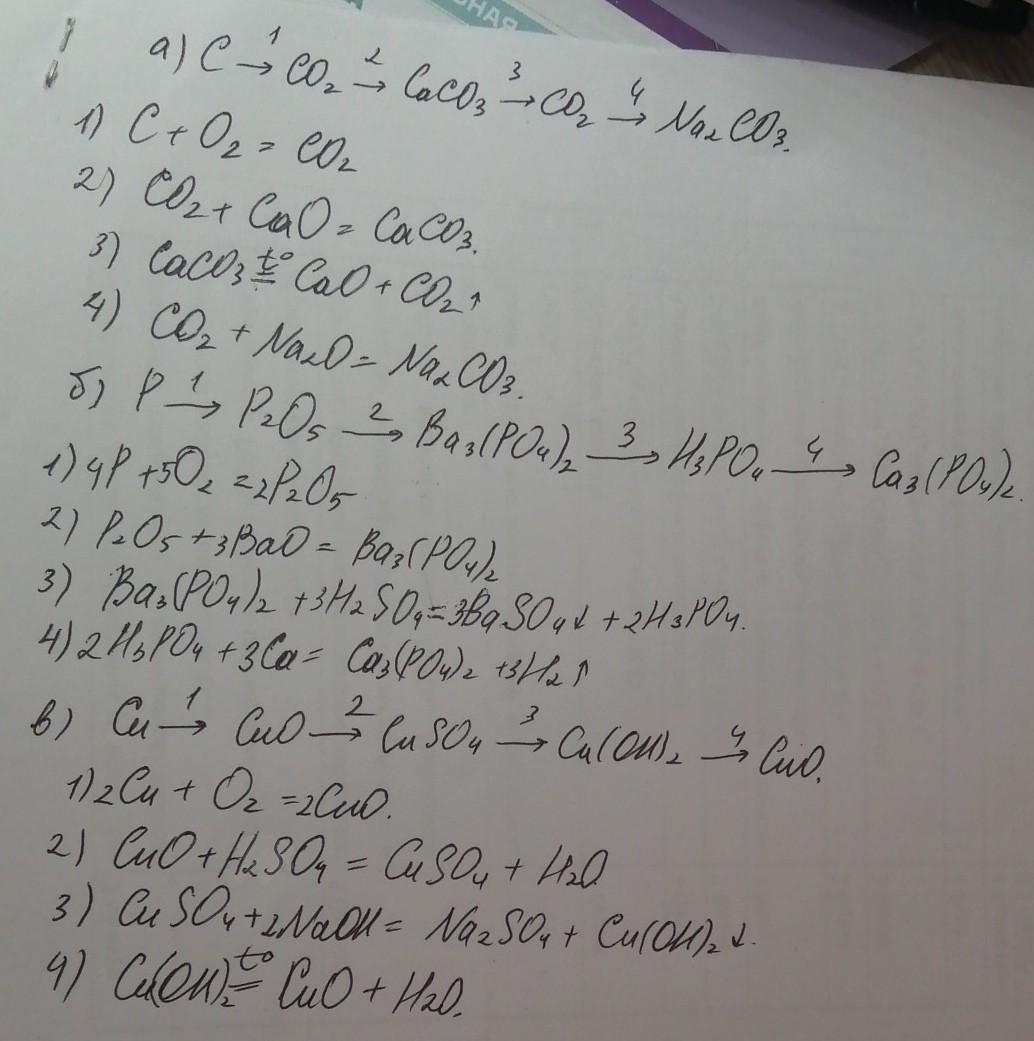 НАЯ
а) C →1 CO₂ →2 CaCO₃ →3 CO₂ →4 Na₂CO₃.
1) C + O₂ = CO₂
2) CO₂ + CaO = CaCO₃.
3) CaCO₃ =t° CaO + CO₂↑
4) CO₂ + Na₂O = Na₂CO₃.
б) P →1 P₂O₅ →2 Ba₃(PO₄)₂ →3 H₃PO₄ →4 Ca₃(PO₄)₂.
1) 4P + 5O₂ = 2P₂O₅
2) P₂O₅ + 3BaO = Ba₃(PO₄)₂
3) Ba₃(PO₄)₂ + 3H₂SO₄ = 3BaSO₄↓ + 2H₃PO₄.
4) 2H₃PO₄ + 3Ca = Ca₃(PO₄)₂ + 3H₂↑
в) Cu →1 CuO →2 CuSO₄ →3 Cu(OH)₂ →4 CuO.
1) 2Cu + O₂ = 2CuO.
2) CuO + H₂SO₄ = CuSO₄ + H₂O
3) CuSO₄ + 2NaOH = Na₂SO₄ + Cu(OH)₂↓.
4) Cu(OH)₂ =t° CuO + H₂O.